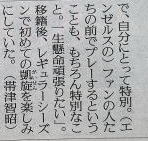 で、自分にとって特別。（エ
ンゼルスの）ファンの人た
ちの前でプレーするという
ことも、もちろん特別なこ
と。一生懸命頑張りたい」。
移籍後、レギュラーシーズ
ンで初めての凱旋を楽しみ
にしていた。（帯津智昭）